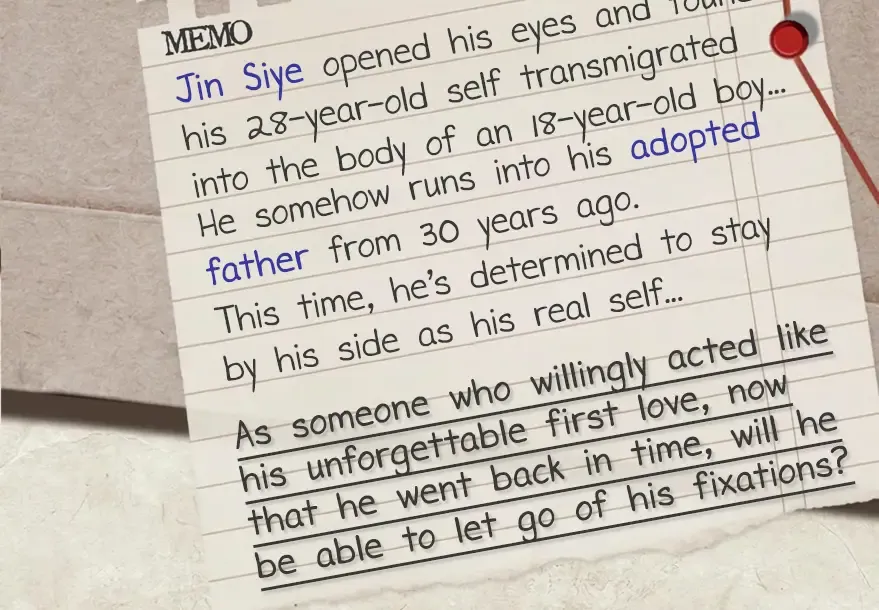 MEMO
Jin Siye opened his eyes and found
his 28-year-old self transmigrated
into the body of an 18-year-old boy...
He somehow runs into his adopted
father from 30 years ago.
This time, he's determined to stay
by his side as his real self...
As someone who willingly acted like
his unforgettable first love, now
that he went back in time, will he
be able to let go of his fixations?